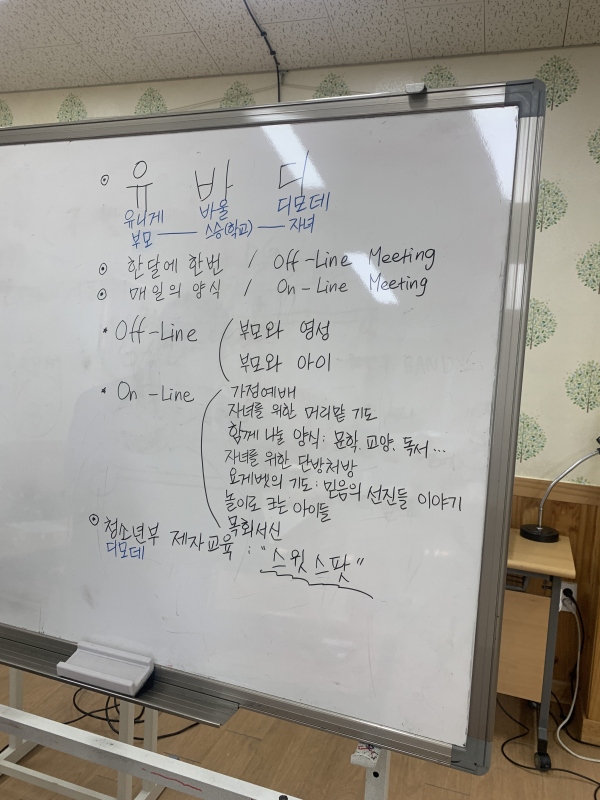 ⊙ 유 바 디
유니게 바울 디모데
부모 — 스승(학교) — 자녀
⊙ 한달에 한번 / Off-Line Meeting
⊙ 매일의 양식 / On-Line Meeting
* Off-Line
부모와 영성
부모와 아이
* On-Line
가정예배
자녀를 위한 머리맡 기도
함께 나눌 양식: 문학, 교양, 독서...
자녀를 위한 단방처방
요게벳의 기도: 믿음의 선진들 이야기
놀이로 크는 아이들
목회서신
⊙ 청소년부 제자교육 : "스윗스팟"
디모데